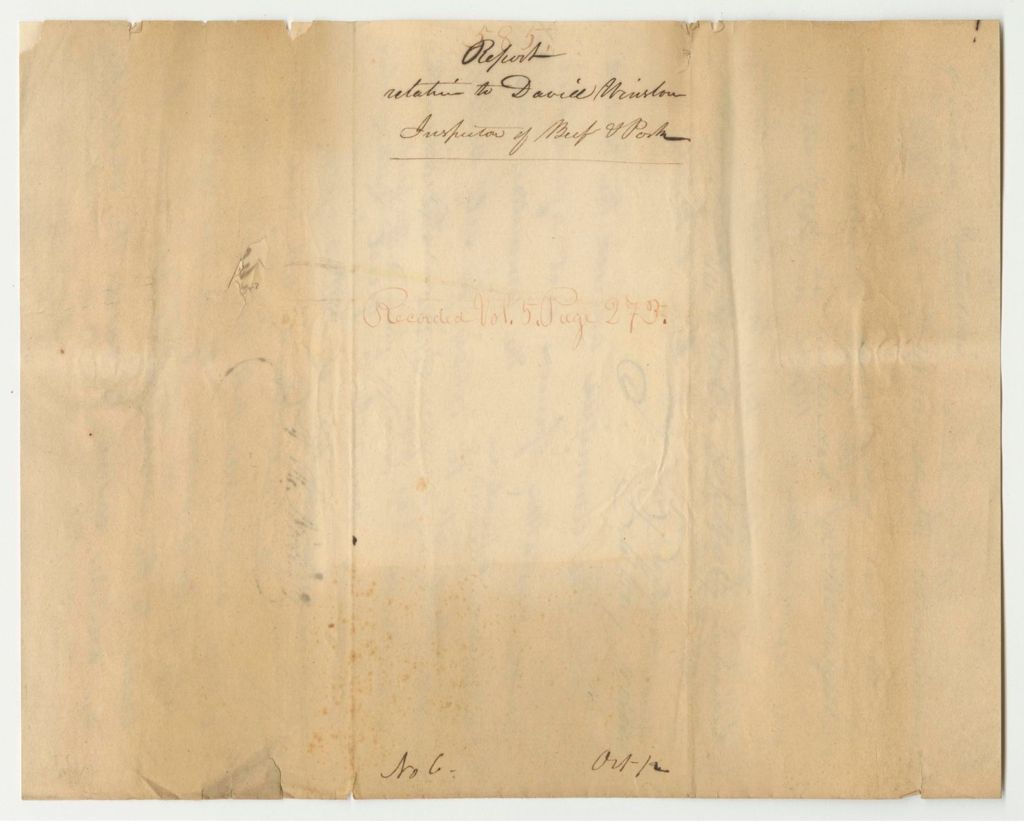 585.
Report
relation to David Winslow
Inspector of Beef & Pork
Recorded Vol. 5. Page 273.
No 6.